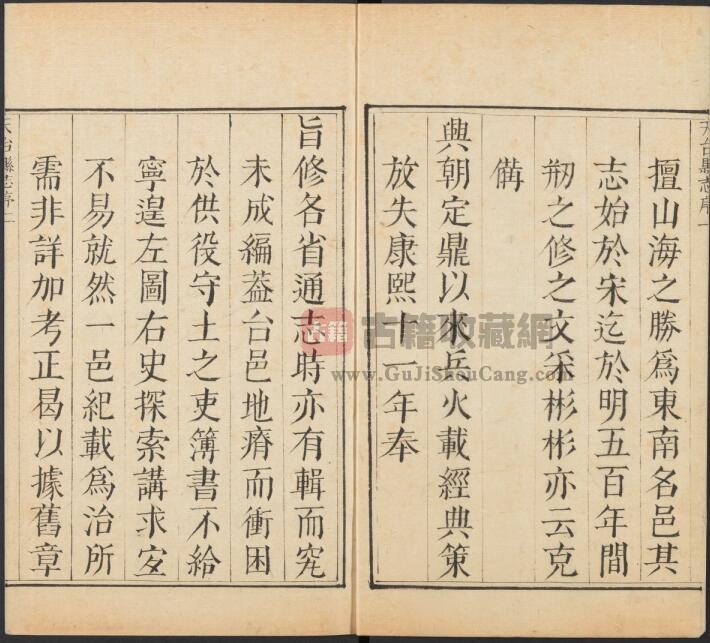 天台縣志序一
擅山海之勝爲東南名邑其
志始於宋迄於明五百年間
剏之修之文采彬彬亦云克
備
興朝定鼎以來兵火載經典策
放失康熙十一年奉
旨修各省通志時亦有輯而究
未成編葢台邑地瘠而衝困
於供役守土之吏簿書不給
寧遑左圖右史探索講求寔
不易就然一邑紀載爲治所
需非詳加考正曷以據舊章
天台縣志序二
古籍
古籍收藏網
www.GuJiShouCang.com